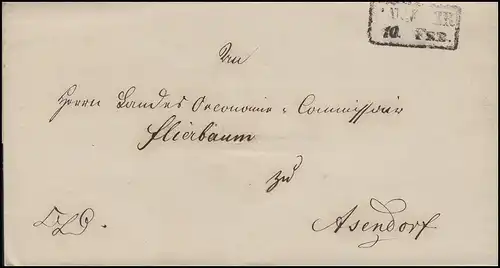 UHR
10. FEB.
An
Herrn Landes Oeconomie-Commissair
Flierbaum
zu
Asendorf